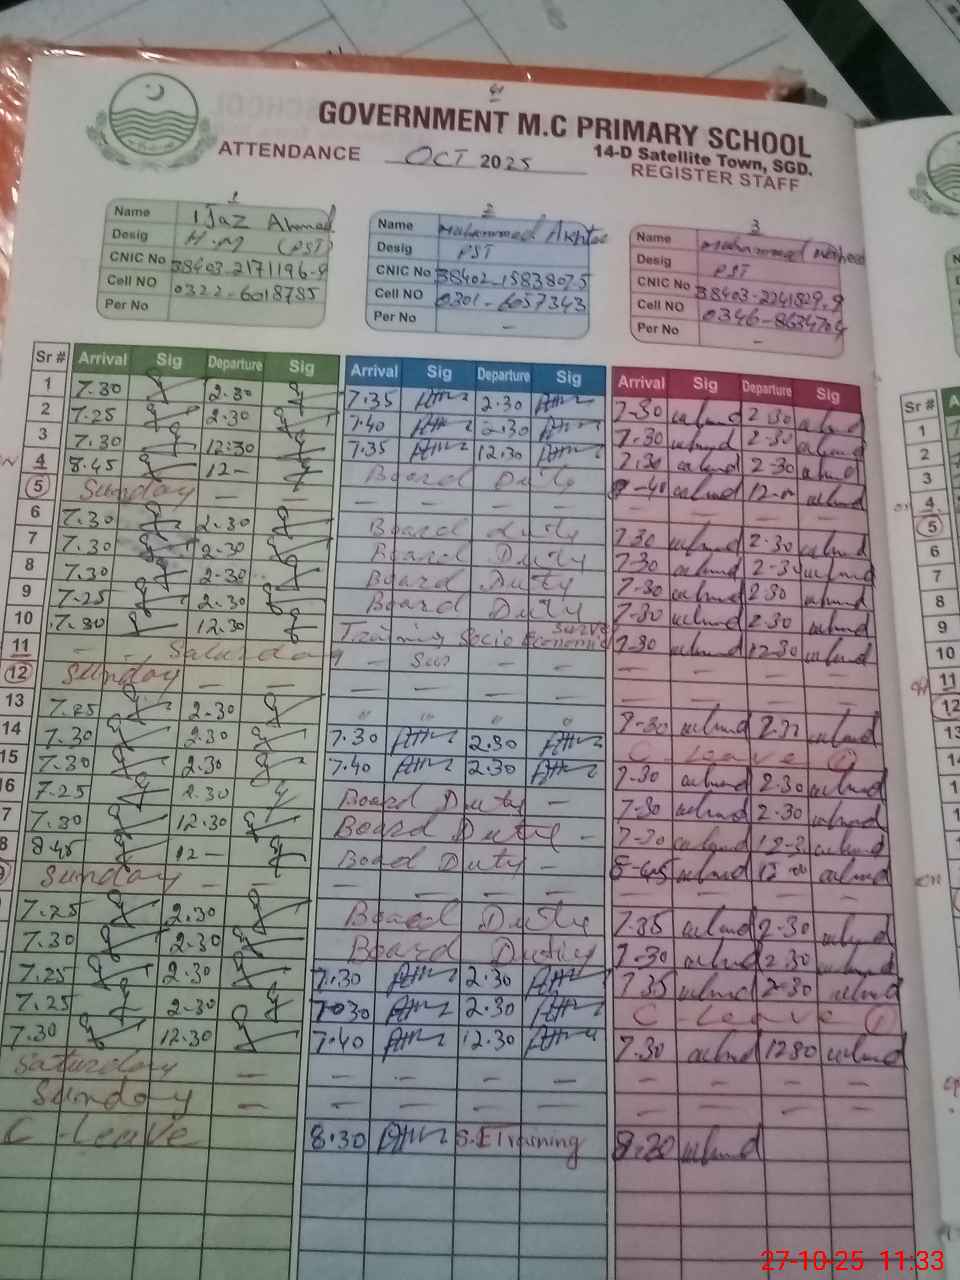 GOVERNMENT M.C PRIMARY SCHOOL
14-D Satellite Town, SGD.
ATTENDANCE OCT 2025 REGISTER STAFF
1
Name IJaZ Ahmad
Desig H.M (PST)
CNIC No 38403-2171196-9
Cell NO 0322-6018785
Per No
2
Name Muhammad Akhtar
Desig PST
CNIC No 38402-1583807-5
Cell NO 0301-6057343
Per No -
3
Name Muhammad
Desig PST
CNIC No 38403-2241829-9
Cell NO 0346-8634704
Per No -
Sr # Arrival Sig Departure Sig Arrival Sig Departure Sig Arrival Sig Departure Sig
1 7.30 2.30 7.35 2.30 7-30 2.30
2 7.25 2.30 7.40 2.30 7.30 2.30
3 7.30 12:30 7.35 12.30 7.30 2-30
4 8.45 12- Board Duty 8-40 12-
5 Sunday - - - - - -
6 7.30 2.30 Board Duty 7.30 2.30
7 7.30 2.30 Board Duty 7.30 2.30
8 7.30 2-30 Board Duty 7-30 2.30
9 7.25 2.30 Board Duty 7-30 2.30
10 7.30 12.30 Training Socio Economic Survey 7-30 12-30
11 - - Saturday - Sun - -
12 Sunday - - - - - -
13 7.25 2.30 " " " " 7-30 2.30
14 7.30 2.30 7.30 2.30 C Leave
15 7.30 2.30 7.40 2.30 7-30 2.30
16 7.25 2.30 Board Duty - 7-30 2.30
7 7.30 12.30 Board Duty - 7-30 12-3
8 8.45 12- Boad Duty - 8-45 12-00
Sunday - - - - - -
7.25 2.30 Board Duty 7.35 2.30
7.30 2.30 Board Duty 7-30 2.30
7.25 2.30 7.30 2.30 7.35 2-30
7.25 2.30 7.30 2.30 C Leave
7.30 12.30 7.40 12.30 7.30 1230
Saturday - - - - - -
Sunday - - - - - -
C-Leave 8.30 S.E Training 8.30
27-10-25 11:33